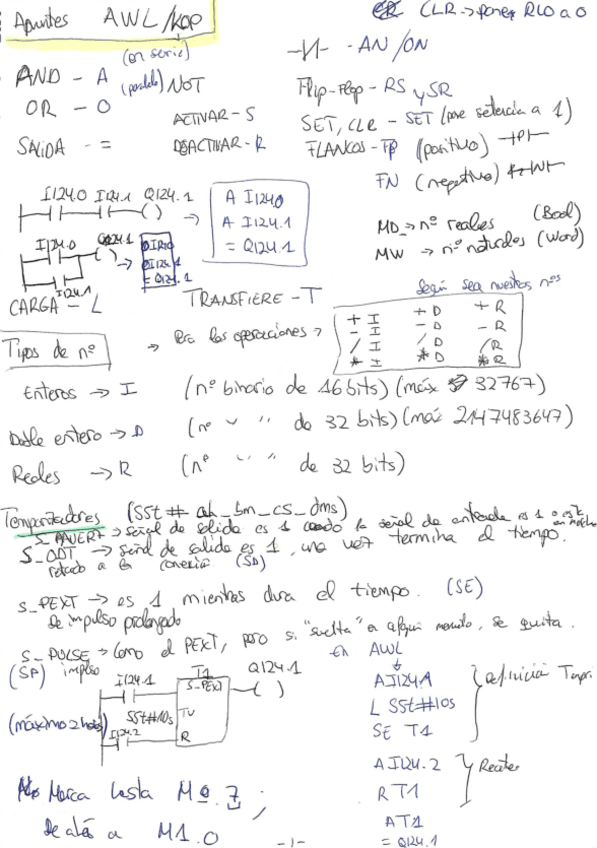 Apuntes AWL/KOP
CLR → pone RLO a 0
AND - A (en serie)
OR - O (paralelo)
SALIDA - =
NOT
ACTIVAR - S
DESACTIVAR - R
- AN/ON
Flip-Flop - RS y SR
SET, CLR - SET (pone setencia a 1)
FLANCOS - FP (positivo) -|P|-
FN (negativo) -|N|-
MD → nº reales (Bool)
MW → nº naturales (Word)
I124.0 I124.1 Q124.1
→
A I124.0
A I124.1
= Q124.1
I124.0 Q124.1
I124.1
→
O I124.0
O I124.1
= Q124.1
CARGA - L TRANSFIERE - T
Según sea nuestros nos
Tipos de nº → Para las operaciones →
+ I + D + R
- I - D - R
/ I / D / R
* I * D * R
Enteros → I (nº binario de 16 bits) (máx 32767)
Doble entero → D (nº " " de 32 bits) (máx 2147483647)
Reales → R (nº " " de 32 bits)
Temporizadores (S5t# ah_bm_cs_dms)
señal de salida es 1 cuando la señal de entrada es 1
S_ODT → señal de salida es 1, una vez termina el tiempo.
retardo a la conexión (SD)
S_PEXT → es 1 mientras dura el tiempo. (SE)
De impulso prolongado
S_PULSE → Como el PEXT, pero si "suelta" en algún momento, se quita.
(SP) impulso
I124.1 T1 Q124.1
S_PEXT
(máximo 2 horas) S5t#10s TV
I124.2 R
En AWL
A I124.1
L S5t#10s
SE T1
Definición Tmpri
A I124.2
R T1
Resetea
A T1
= Q124.1
Marca hasta M0.7;
De ahí a M1.0
-1-